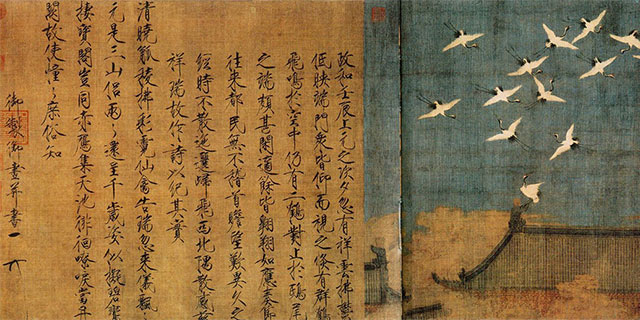 政和壬辰上元之次夕忽有祥雲拂鬱
低映端門衆皆仰而視之倏有群鶴
飛鳴於空中仍有二鶴對止於鴟尾
之端頗甚閑適餘皆翱翔如應奏節
往來都民無不稽首瞻望歎異久之
經時不散迤邐歸飛西北隅散感茲
祥瑞故作詩以紀其實
清曉觚稜拂彩霓仙禽告瑞忽來儀飄
元是三山侶兩々還呈千歲姿似擬碧鸞
棲寶閣豈同赤雁集天池徘徊嘹唳當丹
闕故使憧々庶俗知
御製御畫并書